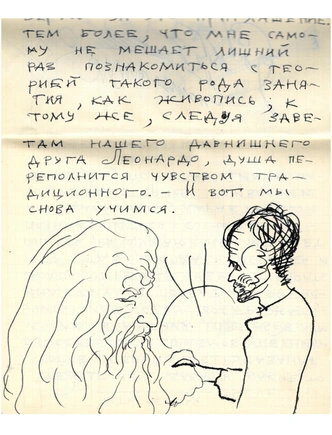 ТЕМ БОЛЕЕ, ЧТО МНЕ САМО-
МУ НЕ МЕШАЕТ ЛИШНИЙ
РАЗ ПОЗНАКОМИТЬСЯ С ТЕО-
РИЕЙ ТАКОГО РОДА ЗАНЯ-
ТИЯ, КАК ЖИВОПИСЬ; К
ТОМУ ЖЕ, СЛЕДУЯ ЗАВЕ-
ТАМ НАШЕГО ДАВНИШНЕГО
ДРУГА ЛЕОНАРДО, ДУША ПЕ-
РЕПОЛНИТСЯ ЧУВСТВОМ ТРА-
ДИЦИОННОГО. – И ВОТ МЫ
СНОВА УЧИМСЯ.